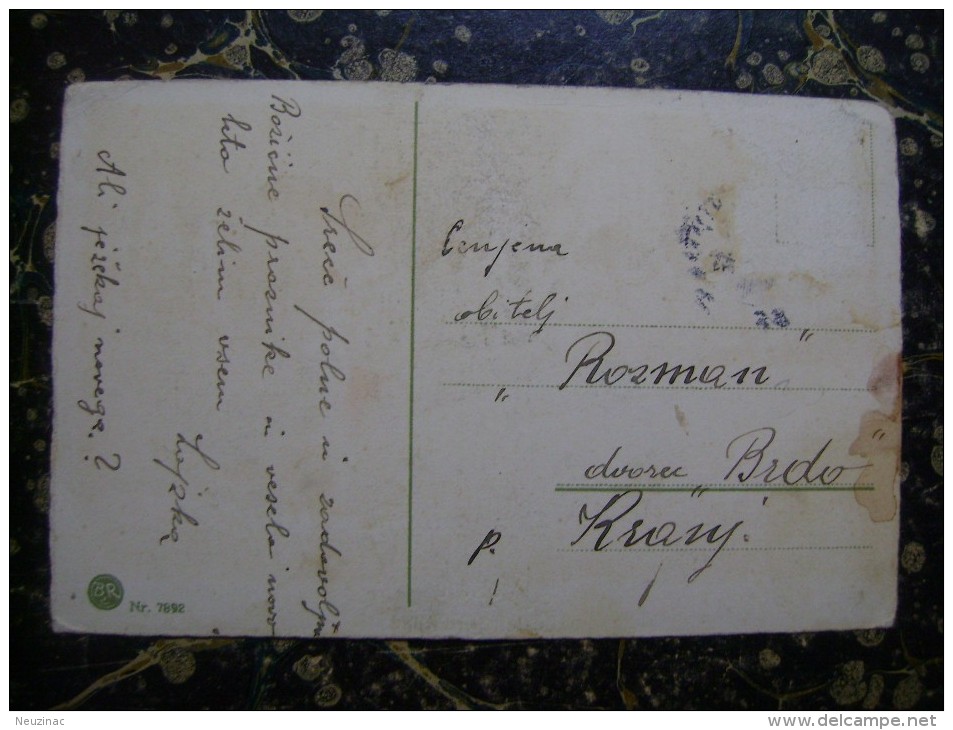 Sreče polne in zadovoljne
Božične praznike in vesela novo
leto želim vsem
Lojzka
Ali ježekaj novega?
Cenjena
obitelj
"Rozman"
dvorec "Brdo"
p. Kranj.
Nr. 7892
Neuzinac
delcampe.net